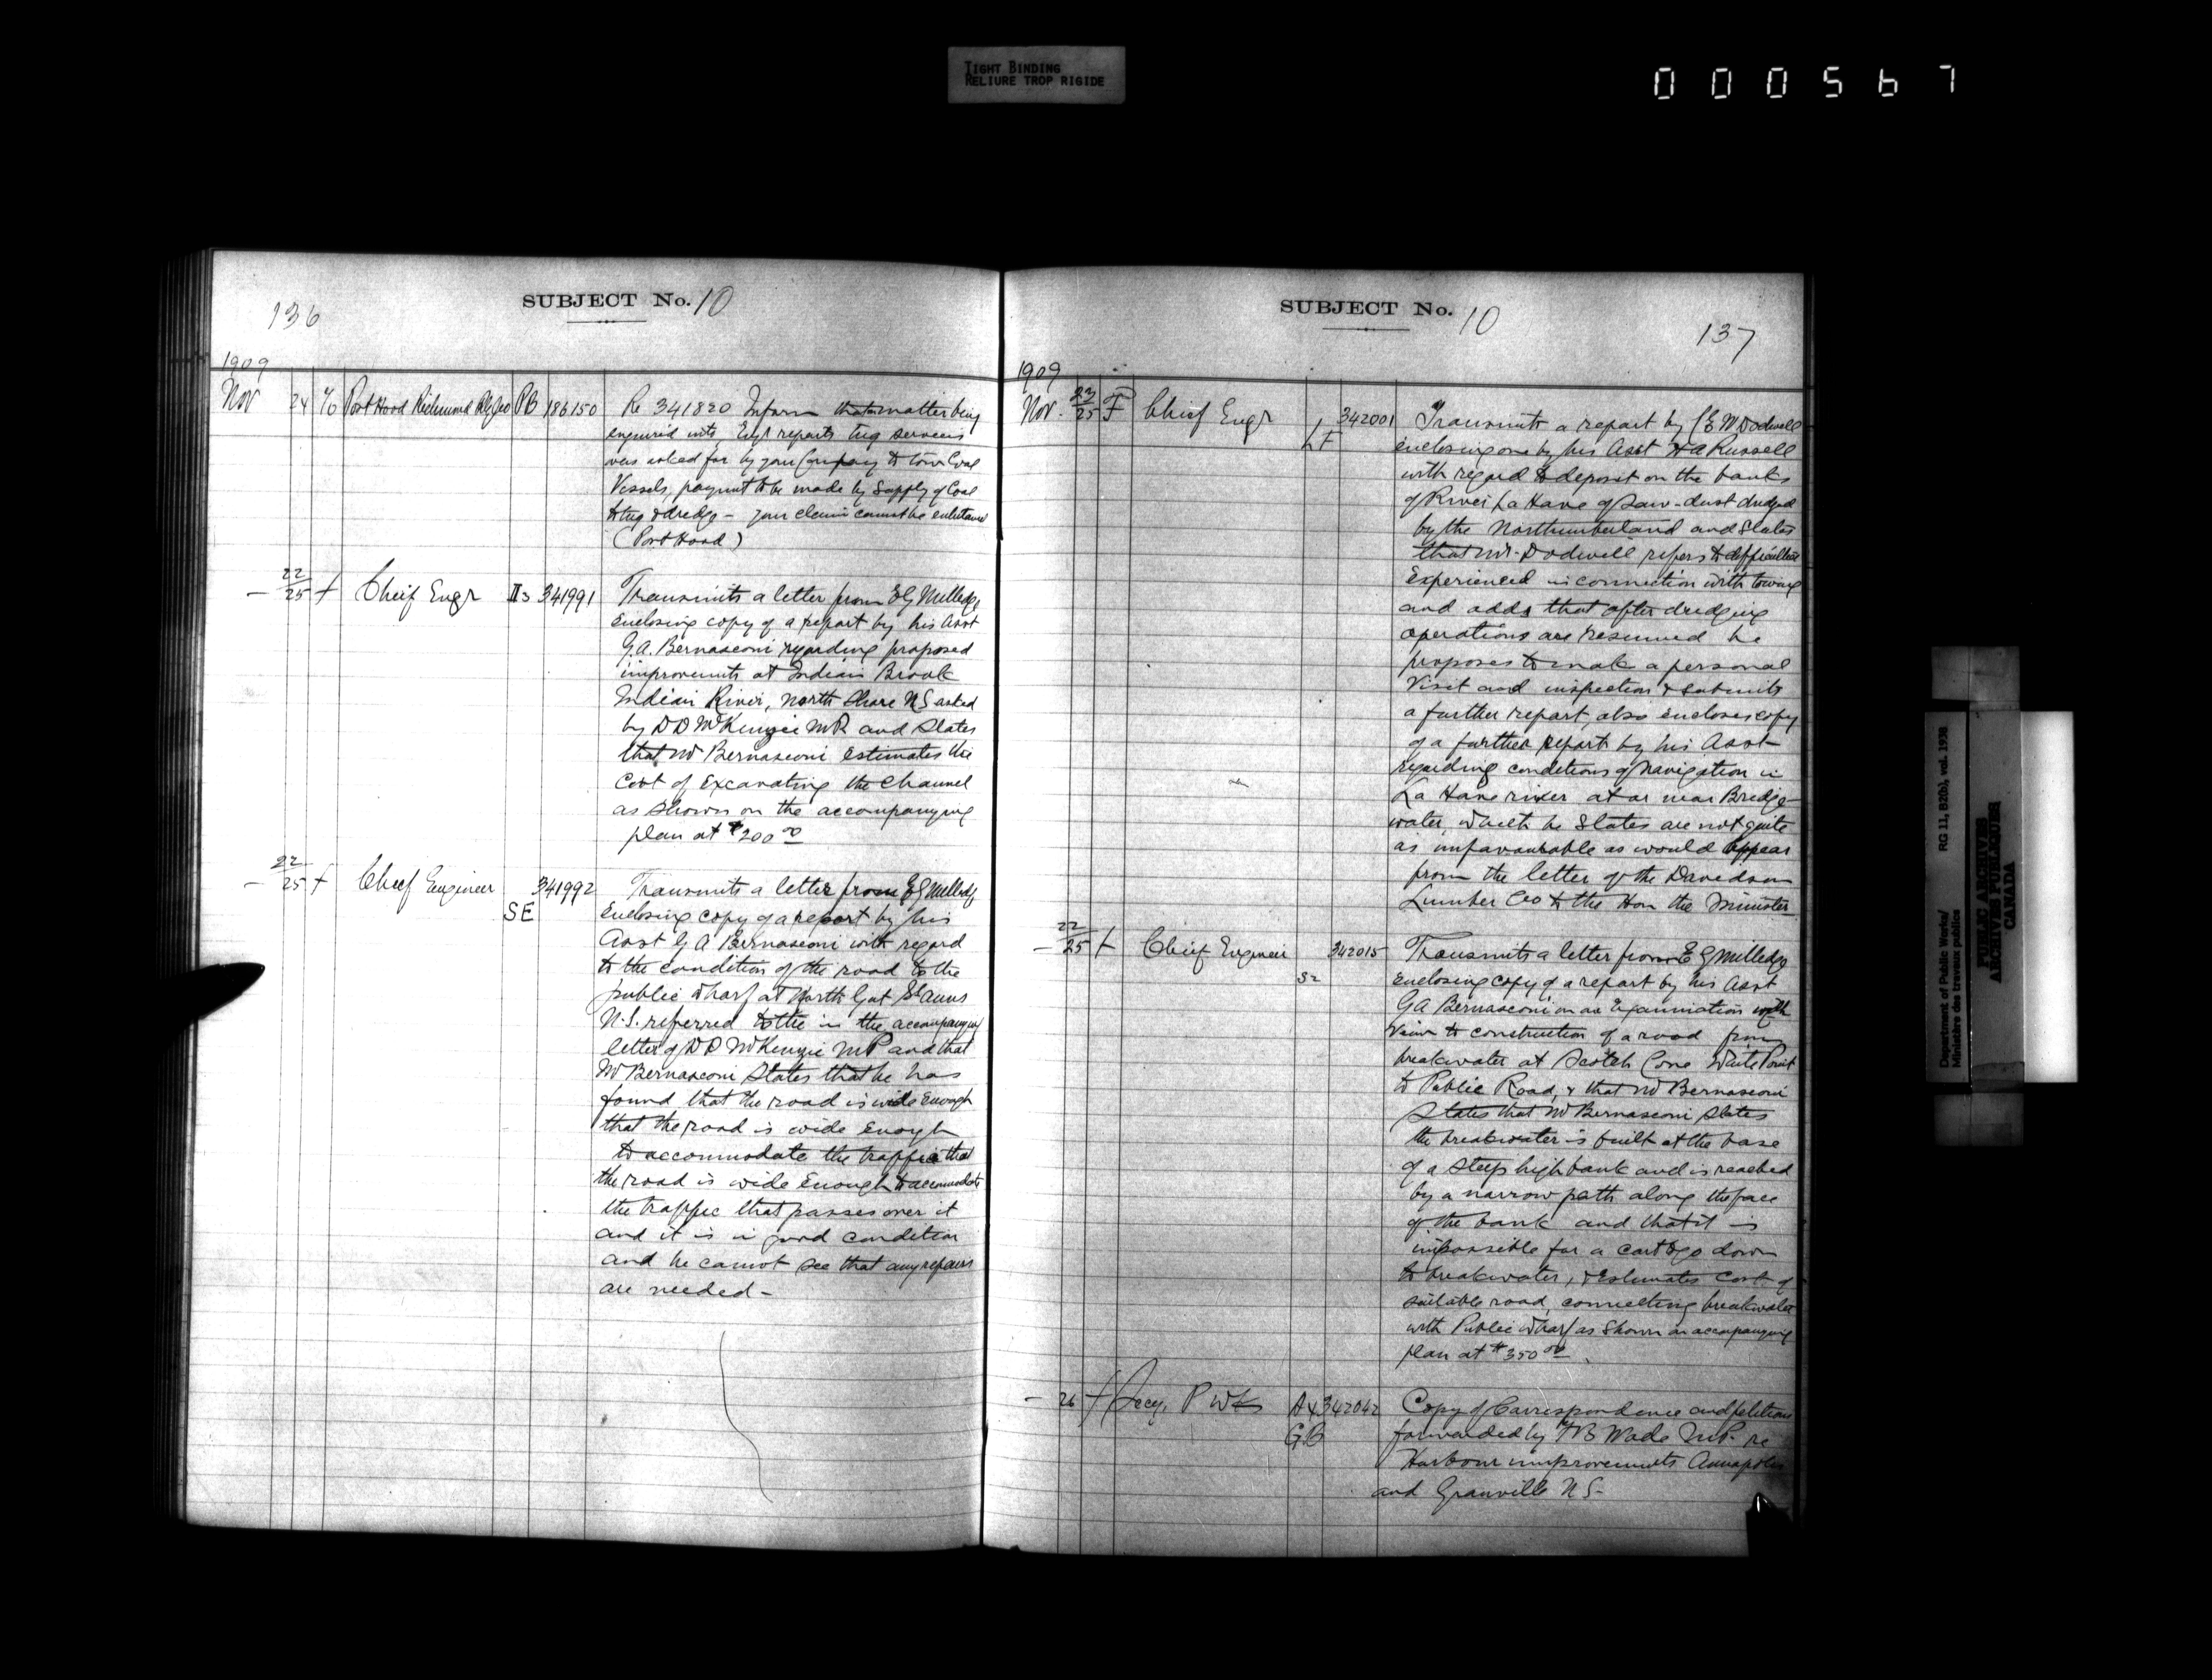 TIGHT BINDING
RELIURE TROP RIGIDE
000567
136
SUBJECT No. 10
1909
Nov 24 % Port Hood Richmond Rly Co PB 186150 Re 341820 Inform that matter being
enquired into, Engr reports tug services
was asked for by your Company to tow Coal
Vessels, payment to be made by Supply of Coal
to tug & dredge - your claim cannot be entertained
(Port Hood)
— 22/25 f Chief Engr 341991 Transmits a letter from EG Milledge
enclosing copy of a report by his Asst
G.A. Bernasconi regarding proposed
improvements at Indian Brook
Indian River, North Shore NS asked
by DD McKenzie MP and States
that Mr Bernasconi estimates the
Cost of Excavating the Channel
as shown on the accompanying
plan at $200 00
— 22/25 f Chief Engineer SE 341992 Transmits a letter from EG Milledge
Enclosing copy of a report by his
Asst G A Bernasconi with regard
to the condition of the road to the
public wharf at North Gut St Anns
N.S. referred to the in the accompanying
letter of DD McKenzie MP and that
Mr Bernasconi States that he has
found that the road is wide enough
that the road is wide enough
to accommodate the traffic that
the road is wide enough to accommodate
the traffic that passes over it
and it is in good condition
and he cannot see that any repairs
are needed -
SUBJECT No. 10
137
1909
Nov. 23/25 F Chief Engr LF 342001 Transmits a report by CEW Dodwell
enclosing one by his Asst HA Russell
with regard to deposit on the banks
of River La Have of saw-dust dredged
by the Northumberland and States
that Mr. Dodwell refers to difficulties
Experienced in connection with towing
and adds that after dredging
operations are resumed he
proposes to make a personal
Visit and inspection & submits
a further report, also encloses copy
of a further report by his Asst
regarding conditions of navigation in
La Have river at or near Bridge-
water, which he States are not quite
as unfavourable as would appear
from the letter of the Davidson
Lumber Co to the Hon the Minister
— 22/25 f Chief Engineer 342015 Transmits a letter from E G Milledge
Enclosing copy of a report by his Asst
GA Bernasconi on an Examination with
View to construction of a road from
breakwater at Scotch Cove White Point
to Public Road, & that Mr Bernasconi
States that Mr Bernasconi states
the breakwater is built at the base
of a steep high bank and is reached
by a narrow path along the face
of the bank and that it is
impossible for a cart to go down
to breakwater, & Estimates Cost of
suitable road, connecting breakwater
with Public Wharf as shown on accompanying
plan at $350 00.
— 26 f Secy, P Wks 342042 Copy of Correspondence and petitions
GB forwarded by Wade MP. re
Harbour improvements Annapolis
and Granville N S-
Department of Public Works/ RG 11, B2(b), vol. 1938
Ministère des travaux publics
PUBLIC ARCHIVES
ARCHIVES PUBLIQUES
CANADA